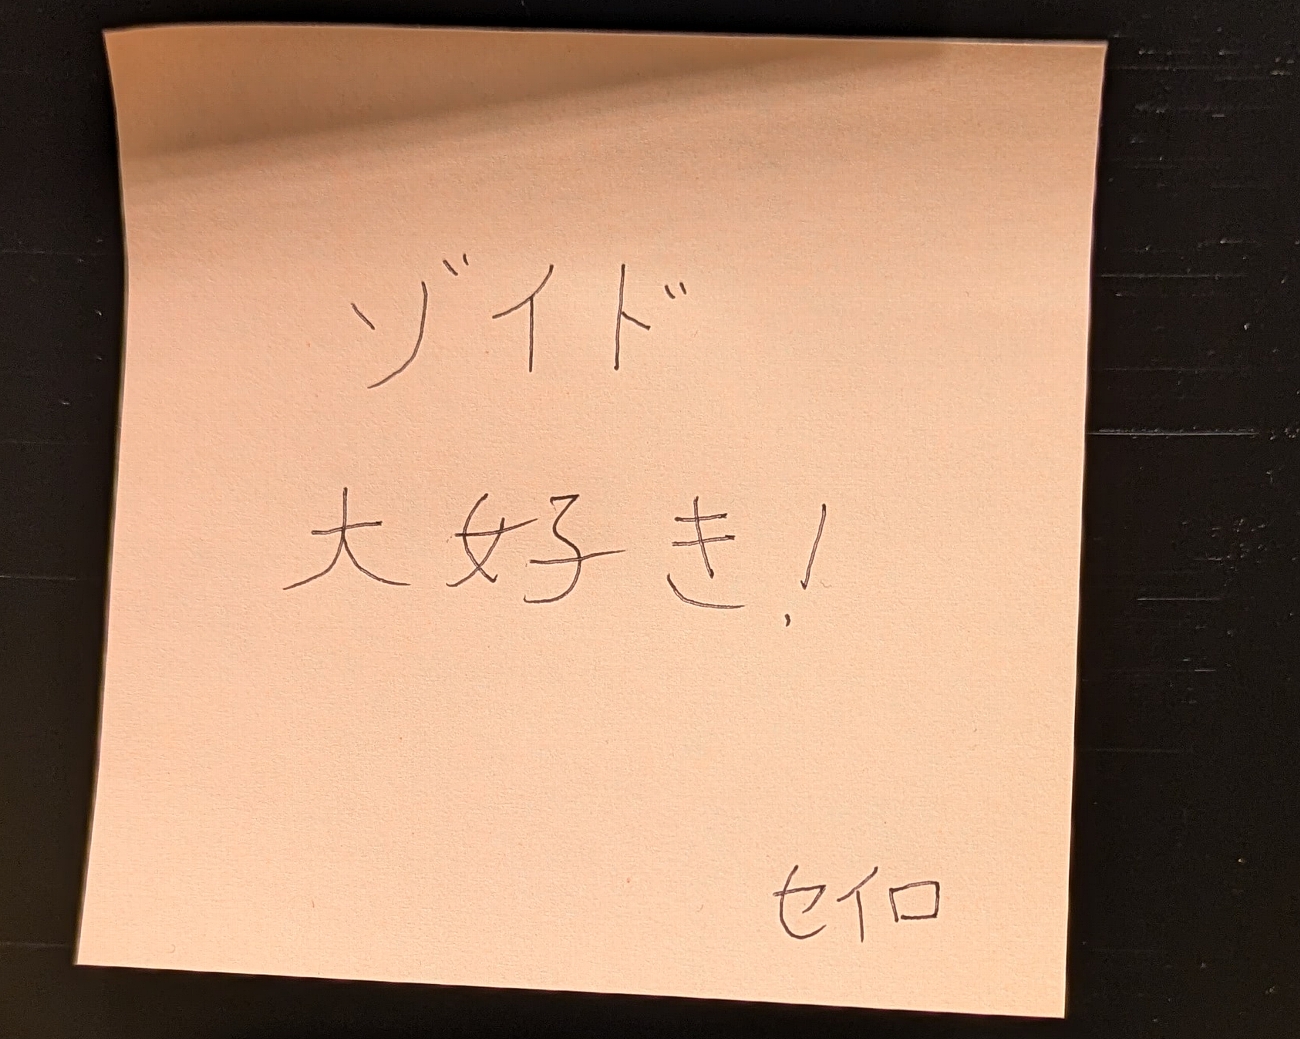 ゾイド
大好き!
セイロ